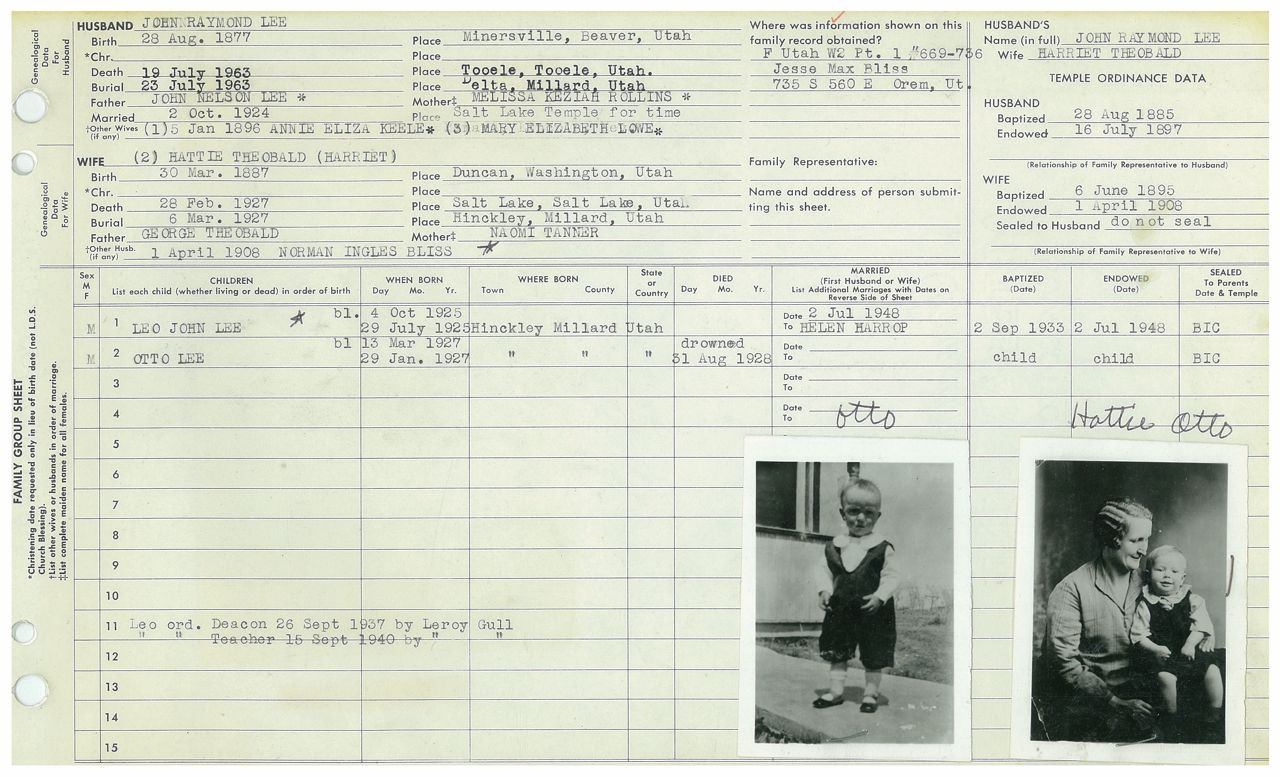 HUSBAND JOHN RAYMOND LEE
Birth 28 Aug. 1877 Place Minersville, Beaver, Utah
*Chr. Place
Death 19 July 1963 Place Tooele, Tooele, Utah.
Burial 23 July 1963 Place Delta, Millard, Utah
Father JOHN NELSON LEE * Mother‡ MELISSA KEZIAH ROLLINS *
Married 2 Oct. 1924 Place Salt Lake Temple for time
†Other Wives (if any) (1)5 Jan 1896 ANNIE ELIZA KEELE* (3) MARY ELIZABETH LOWE*
WIFE (2) HATTIE THEOBALD (HARRIET)
Birth 30 Mar. 1887 Place Duncan, Washington, Utah
*Chr. Place
Death 28 Feb. 1927 Place Salt Lake, Salt Lake, Utah
Burial 6 Mar. 1927 Place Hinckley, Millard, Utah
Father GEORGE THEOBALD Mother‡ NAOMI TANNER
†Other Husb. (if any) 1 April 1908 NORMAN INGLES BLISS *
Where was information shown on this
family record obtained?
F Utah W2 Pt. 1 #669-736
Jesse Max Bliss
735 S 560 E Orem, Ut.
Family Representative:
Name and address of person submit-
ting this sheet.
HUSBAND'S
Name (in full) JOHN RAYMOND LEE
Wife HARRIET THEOBALD
TEMPLE ORDINANCE DATA
HUSBAND
Baptized 28 Aug 1885
Endowed 16 July 1897
(Relationship of Family Representative to Husband)
WIFE
Baptized 6 June 1895
Endowed 1 April 1908
Sealed to Husband do not seal
(Relationship of Family Representative to Wife)
Genealogical Data For Husband
Genealogical Data For Wife
FAMILY GROUP SHEET
*Christening date requested only in lieu of birth date (not L.D.S.
Church Blessing).
†List other wives or husbands in order of marriage.
‡List complete maiden name for all females.
Sex M F
CHILDREN
List each child (whether living or dead) in order of birth
WHEN BORN
Day Mo. Yr.
WHERE BORN
Town County
State or Country
DIED
Day Mo. Yr.
MARRIED
(First Husband or Wife)
List Additional Marriages with Dates on
Reverse Side of Sheet
BAPTIZED
(Date)
ENDOWED
(Date)
SEALED
To Parents
Date & Temple
bl. 4 Oct 1925 Date 2 Jul 1948
M 1 LEO JOHN LEE * 29 July 1925 Hinckley Millard Utah To HELEN HARROP 2 Sep 1933 2 Jul 1948 BIC
bl 13 Mar 1927 drowned Date
M 2 OTTO LEE 29 Jan. 1927 " " " 31 Aug 1928 To child child BIC
3 Date
To
4 Date
To
otto
Hattie Otto
5
6
7
8
9
10
11 Leo ord. Deacon 26 Sept 1937 by Leroy Gull
" " Teacher 15 Sept 1940 by " "
12
13
14
15